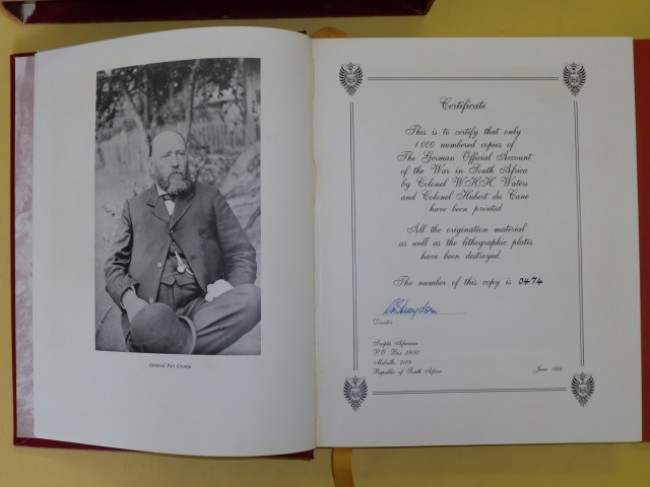 General Piet Cronje
Certificate
This is to certify that only
1 000 numbered copies of
The German Official Account
of the War in South Africa
by Colonel W.H.H. Waters
and Colonel Hubert du Cane
have been printed
All the origination material
as well as the lithographic plates
have been destroyed.
The number of this copy is 0474
Director
Scripta Africana
P.O. Box
Melville, 2109
Republic of South Africa
June